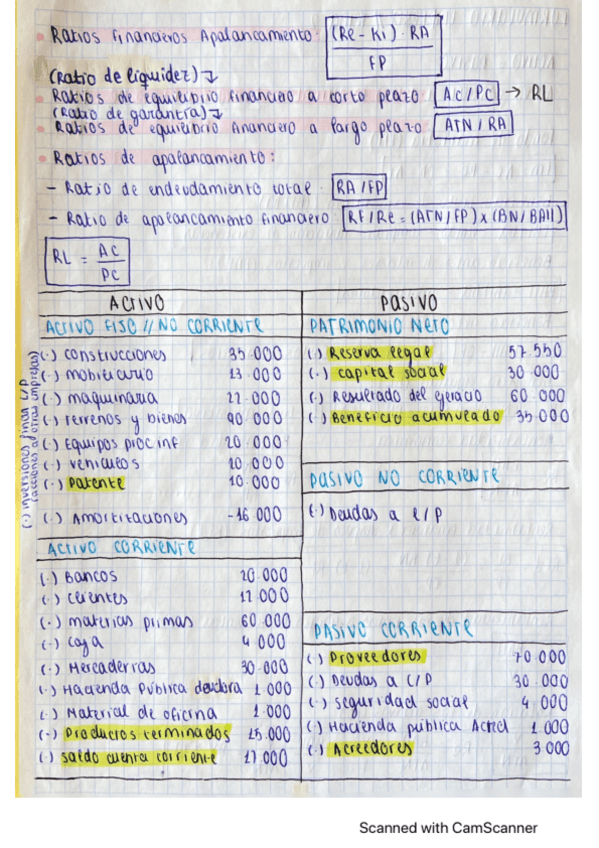 Ratios financieros Apalancamiento: (Re - Ki) · RA / FP
(ratio de liquidez)
Ratios de equilibrio financiero a corto plazo: AC / PC → RL
(ratio de garantía)
Ratios de equilibrio financiero a largo plazo ATN / RA
Ratios de apalancamiento:
- Ratio de endeudamiento total: RA / FP
- Ratio de apalancamiento financiero RF / Re = (ATN / FP) x (BN / BAII)
RL = AC / PC
ACTIVO
ACTIVO FIJO // NO CORRIENTE
(·) construcciones 35.000
(·) mobiliario 13.000
(·) maquinaria
(·) terrenos y bienes 90.000
(·) Equipos proc inf 20.000
(·) vehiculos 10.000
(·) Patente 10.000
(·) Amortizaciones -16.000
(·) inversiones finan L/P
(acciones a otras empresas)
ACTIVO CORRIENTE
(·) Bancos 20.000
(·) clientes
(·) materias primas 60.000
(·) caja 4.000
(·) Mercaderías 30.000
(·) Hacienda Pública deudora 1.000
(·) Material de oficina 1.000
(·) Productos terminados
(·) saldo cuenta corriente
PASIVO
PATRIMONIO NETO
(·) Reserva legal 57.550
(·) capital social 30.000
(·) Resultado del ejercicio 60.000
(·) Beneficio acumulado 35.000
PASIVO NO CORRIENTE
(·) Deudas a L/P
PASIVO CORRIENTE
(·) Proveedores 70.000
(·) Deudas a C/P 30.000
(·) seguridad social 4.000
(·) Hacienda pública Acred 1.000
(·) Acreedores 3.000
Scanned with CamScanner